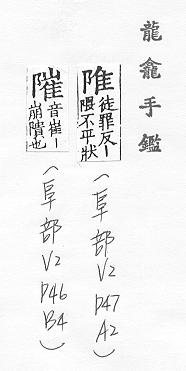 龍龕手鑑
陮徒罪反ー
隈不平狀
(阜部
V2
P47
A2)
㠑音崔ー
崩隤也
(阜部
V2
P46
B4)